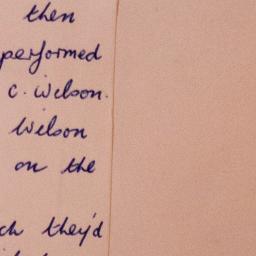 then
performed
C. Wilson.
Wilson
on the
ch they'd